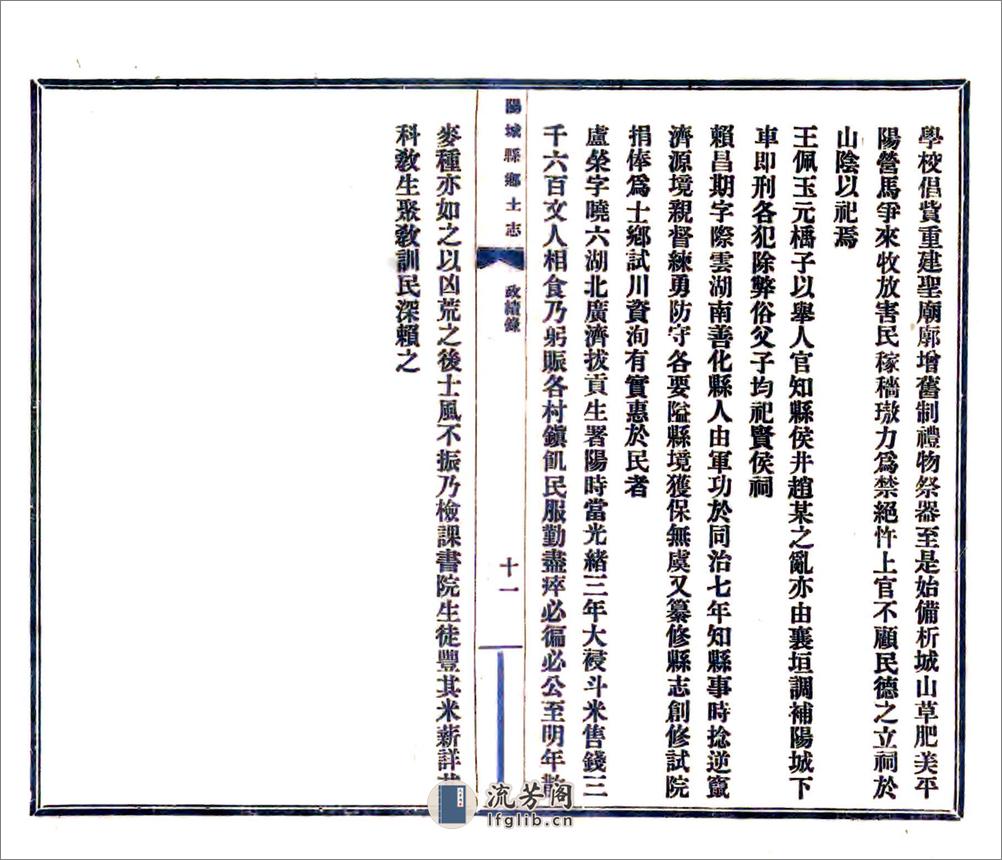 學校倡貲重建聖廟廓增舊制禮物祭器至是始備析城山草肥美平
陽營馬爭來牧放害民稼穡璈力爲禁絕忤上官不顧民德之立祠於
山陰以祀焉
王佩玉元楀子以舉人官知縣侯井趙某之亂亦由襄垣調補陽城下
車即刑各犯除弊俗父子均祀賢侯祠
賴昌期字際雲湖南善化縣人由軍功於同治七年知縣事時捻逆竄
濟源境親督練勇防守各要隘縣境獲保無虞又纂修縣志創修試院
捐俸爲士鄉試川資洵有實惠於民者
盧榮字曉六湖北廣濟拔貢生署陽時當光緒三年大祲斗米售錢三
千六百文人相食乃躬賑各村鎭飢民服勤盡瘁必徧必公至明年散
陽城縣鄉土志
政績錄
十一
麥種亦如之以凶荒之後士風不振乃檢課書院生徒豐其米薪詳其
科敎生聚敎訓民深賴之
流芳阁
lfglib.cn